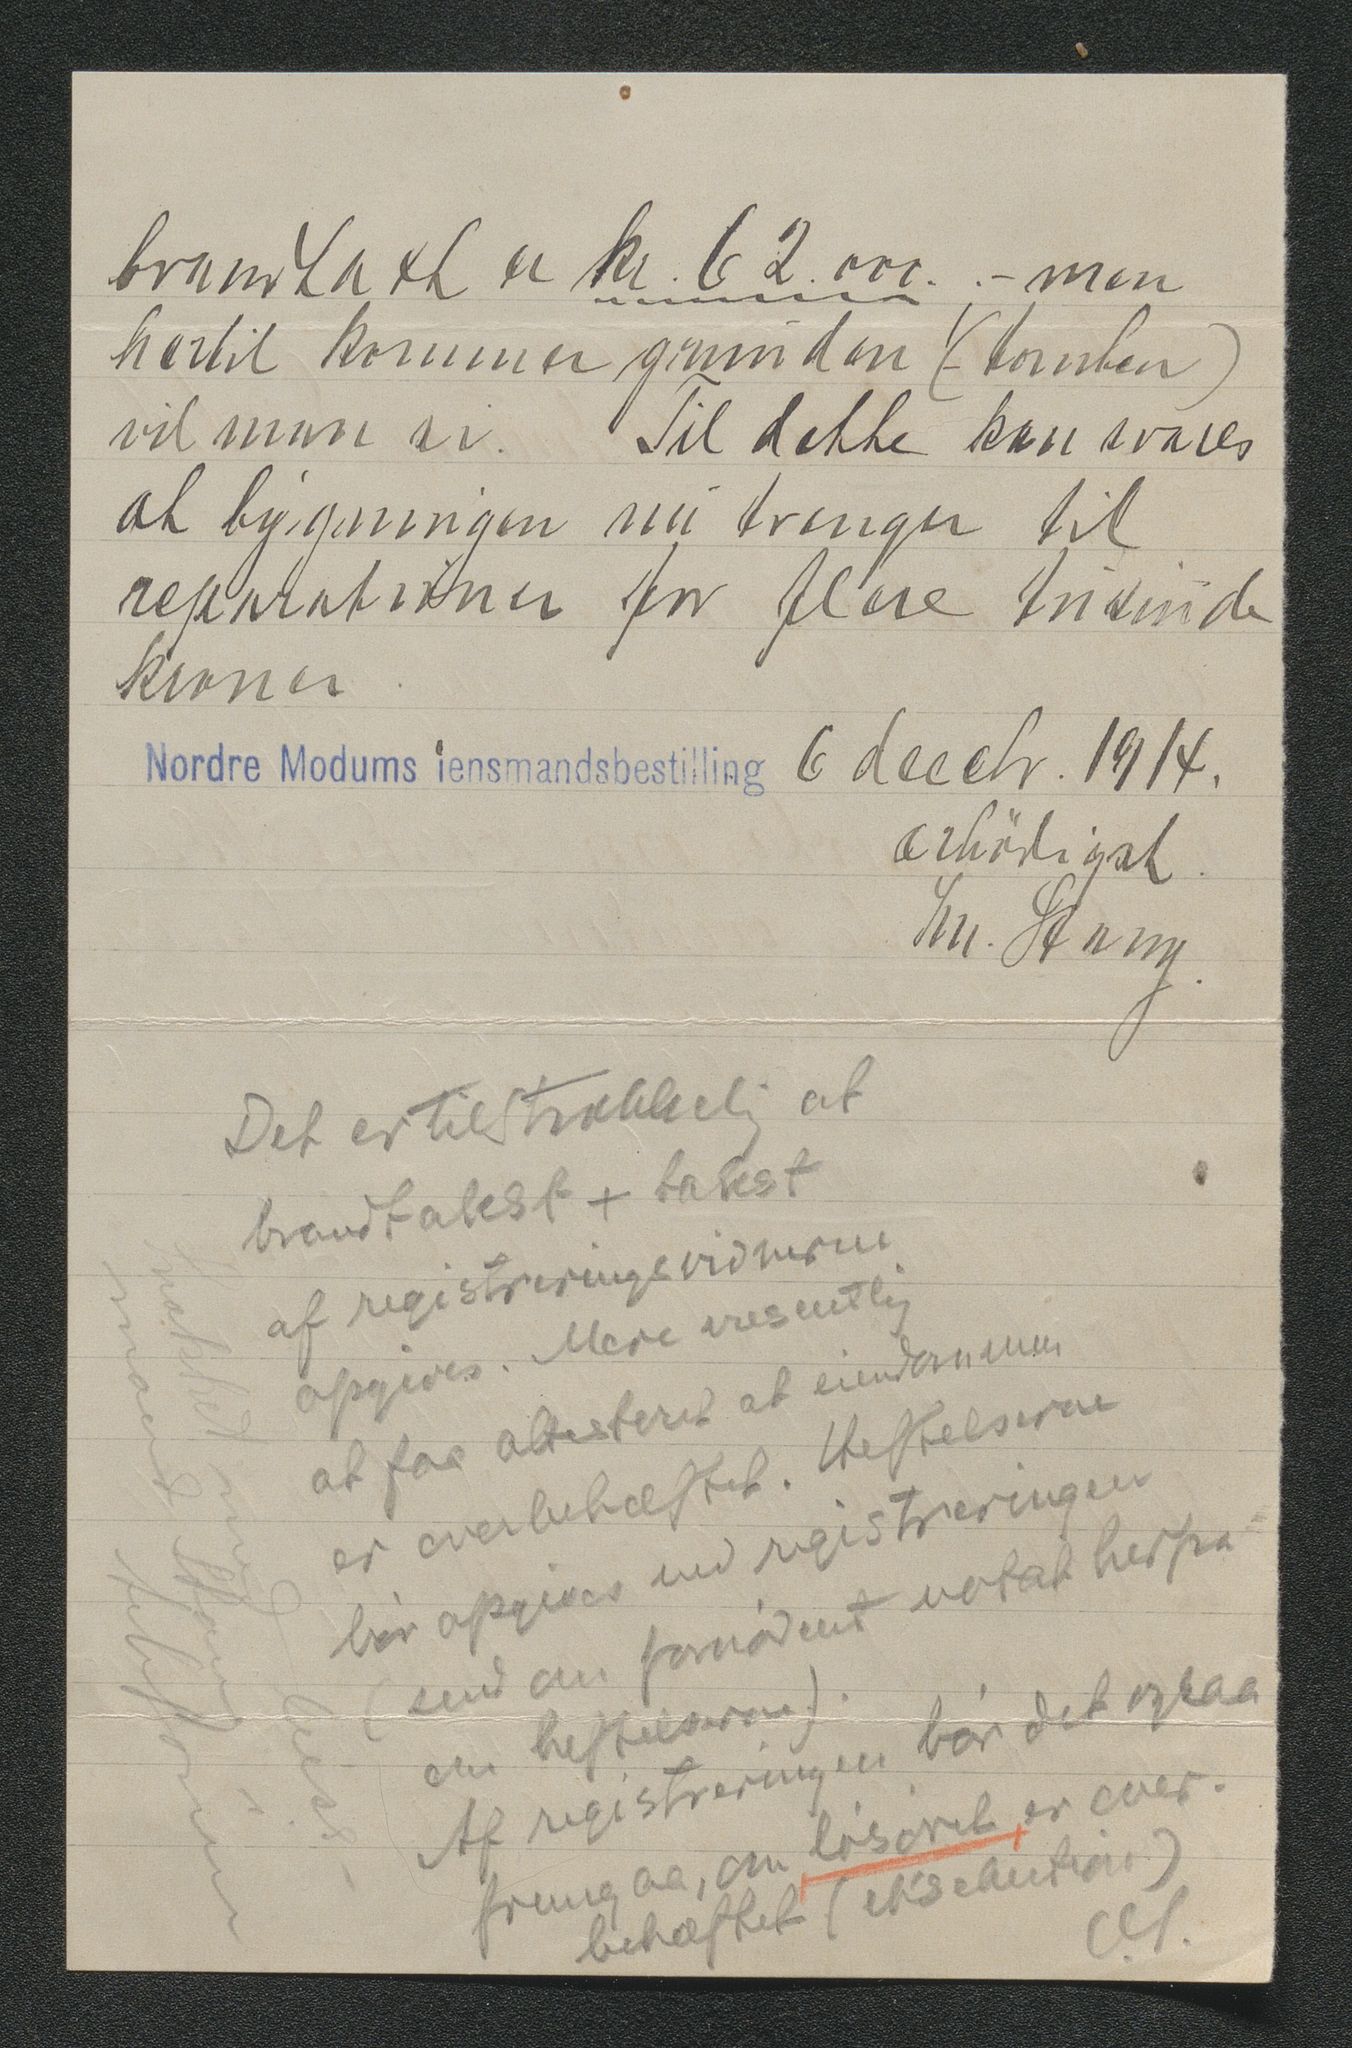 brandtaxt er kr. 62.000. - men
hertil kommer grunden (tomten)
vil man si. Til dette kan svares
at bygningen nu trenger til
reparationer for flere tusinde
kroner.
Nordre Modums lensmandsbestilling 6 decbr. 1914.
ærbödigst
Chr. Stang.
Det er tilstrækkelig at
brandtakst + takst
af registreringsvidnerne
opgives. Mere væsentlig
at faa attesteret at eiendommen
er overbehæftet. Heftelserne
bör opgives ved registreringen
(send om fornödent notat herfra
om heftelserne).
Af registreringen bör det ogsaa
fremgaa, om lösöret er over-
behæftet (eksekution)